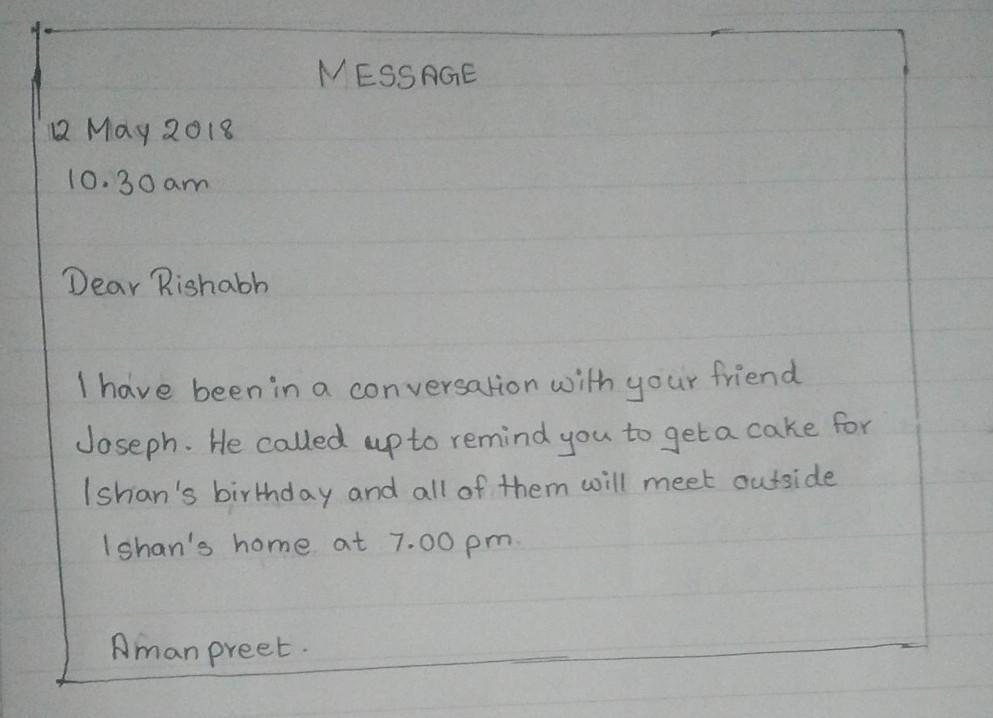 MESSAGE
12 May 2018
10.30 am
Dear Rishabh
I have been in a conversation with your friend
Joseph. He called up to remind you to get a cake for
Ishan's birthday and all of them will meet outside
Ishan's home at 7.00 pm.
Amanpreet.